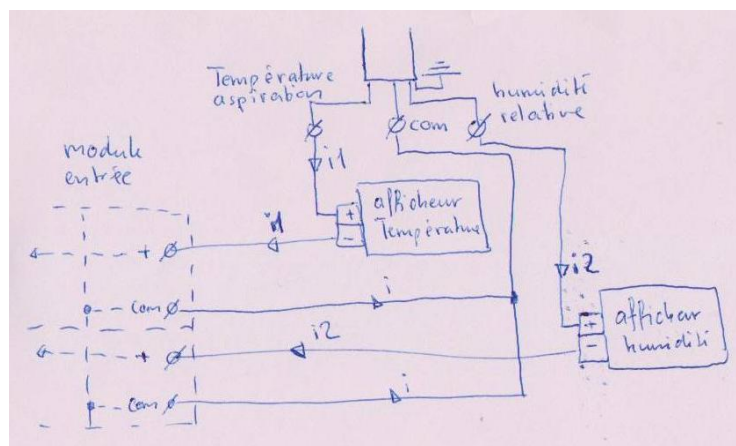 Température
aspiration
com
humidité
relative
module
entrée
i1
+
-
afficheur
Température
i1
+
i2
com
i
+
-
afficheur
humidité
+
i2
com
i